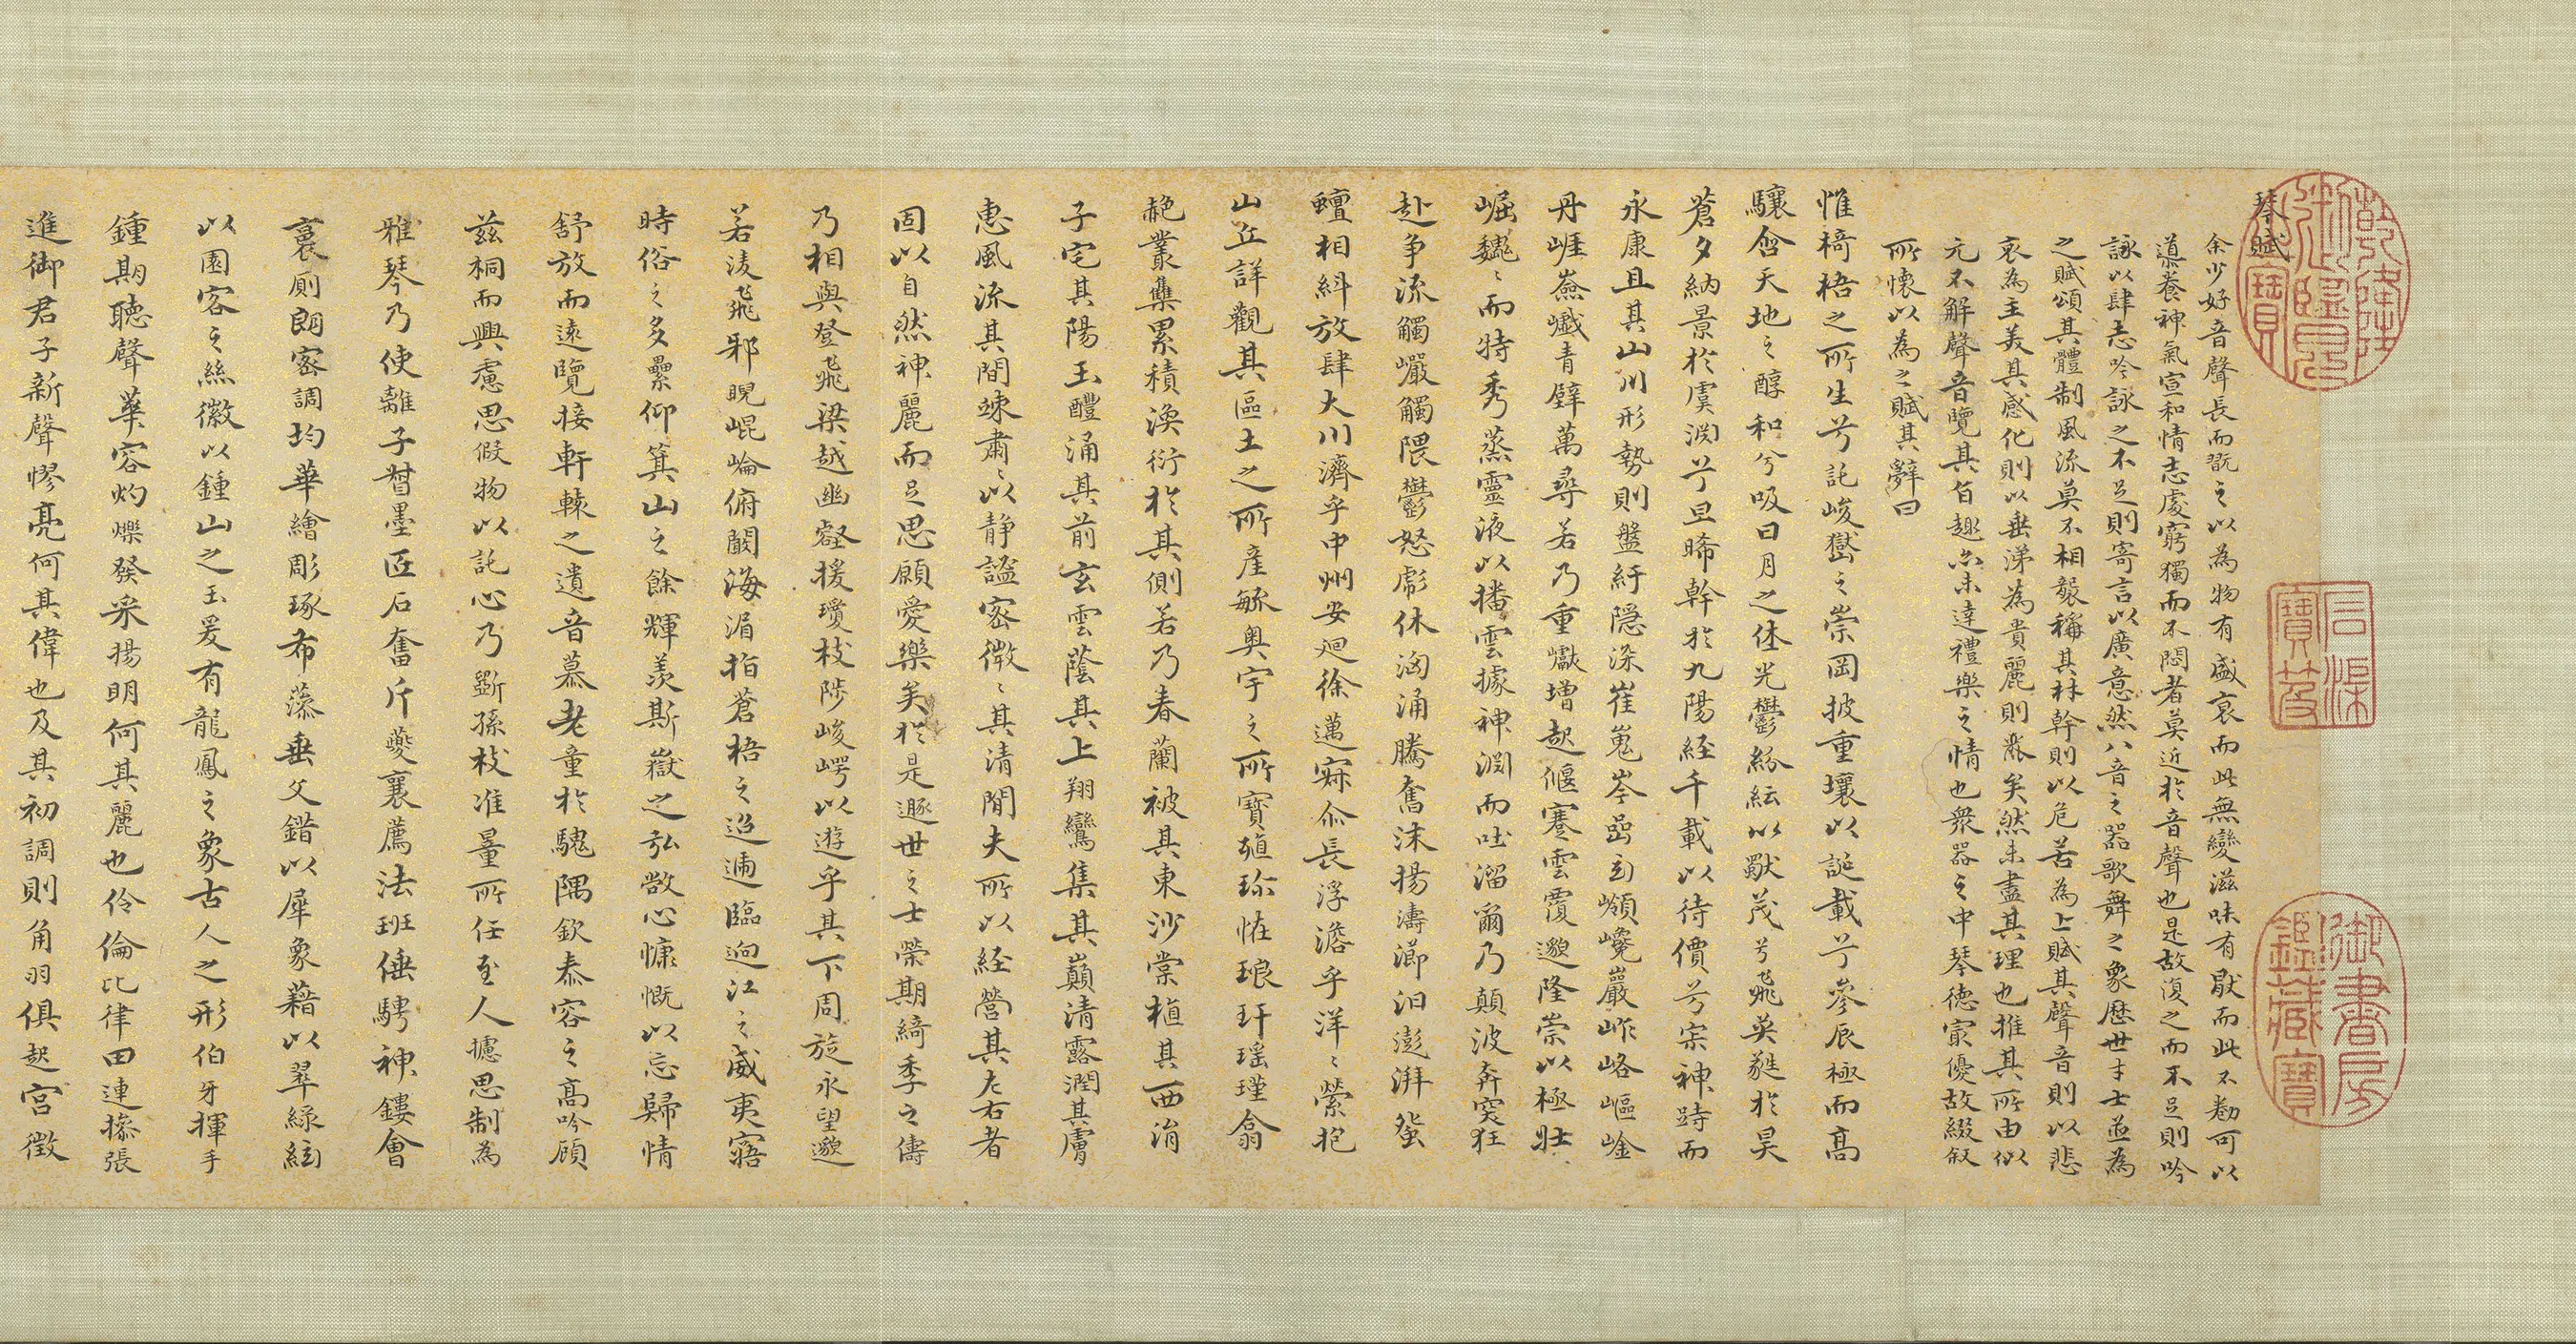 乾隆御覽之寶
石渠寶笈
御書房鑑藏寶
琴賦
余少好音聲長而翫之以為物有盛衰而此無變滋味有猒而此不勌可以
導養神氣宣和情志處窮獨而不悶者莫近於音聲也是故復之而不足則吟
詠以肆志吟詠之不足則寄言以廣意然八音之器歌舞之象歷世才士並為
之賦頌其體制風流莫不相襲稱其材幹則以危苦為上賦其聲音則以悲
哀為主美其感化則以垂涕為貴麗則麗矣然未盡其理也推其所由似
元不解聲音覽其旨趣亦未達禮樂之情也衆器之中琴德最優故綴叙
所懷以為之賦其辭曰
惟椅梧之所生兮託峻嶽之崇岡披重壤以誕載兮參辰極而高
驤含天地之醇和兮吸日月之休光鬱紛紜以獨茂兮飛英蕤於昊
蒼夕納景於虞淵兮旦晞幹於九陽經千載以待價兮寂神跱而
永康且其山川形勢則盤紆隱深崔嵬岑嵓互嶺巉巖岞峈嶇崯
丹崖嶮巇青壁萬尋若乃重巘增起偃蹇雲覆邈隆崇以極壯
崛巍巍而特秀蒸靈液以播雲據神淵而吐溜爾乃顛波奔突狂
赴爭流觸巖觸隈鬱怒彪休洶涌騰奮沫揚濤瀄汨澎湃蜿
蟺相糾放肆大川濟乎中州安迴徐邁寂尒長浮澹乎洋洋縈抱
山丘詳觀其區土之所產毓奧宇之所寶殖珎恠琅玕瑤瑾翕
赩叢集累積渙衍於其側若乃春蘭被其東沙棠植其西涓
子宅其陽玉醴涌其前玄雲蔭其上翔鸞集其巔清露潤其膚
惠風流其間竦肅肅以靜謐密微微其清閒夫所以經營其左右者
固以自然神麗而足思願愛樂矣於是遯世之士榮期綺季之儔
乃相與登飛梁越幽壑援瓊枝陟峻崿以遊乎其下周旋永望邈
若淩飛邪睨崐崘俯闞海湄指蒼梧之迢遞臨迴江之威夷寤
時俗之多纍仰箕山之餘輝羨斯嶽之弘敞心慷慨以忘歸情
舒放而遠覽接軒轅之遺音慕老童於騩隅欽泰容之高吟顧
茲桐而興慮思假物以託心乃斲孫枝准量所任至人攄思制為
雅琴乃使離子督墨匠石奮斤夔襄薦法班倕騁神鎪會
裛厠朗密調均華繪彫琢布藻垂文錯以犀象藉以翠綠絃
以園客之絲徽以鍾山之玉爰有龍鳳之象古人之形伯牙揮手
鍾期聽聲華容灼爍發采揚明何其麗也伶倫比律田連操張
進御君子新聲憀亮何其偉也及其初調則角羽俱起宮徵